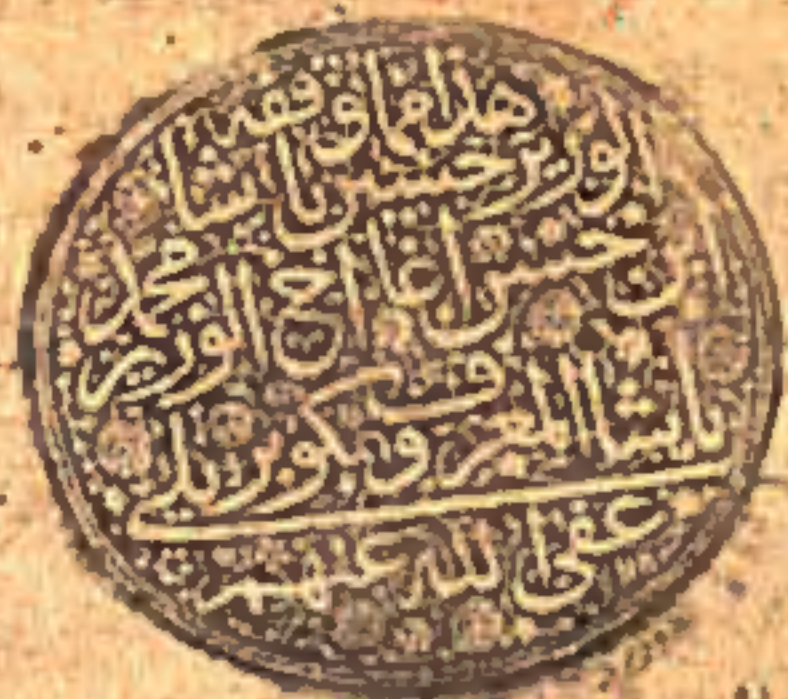 هذا مما وقفه
الوزير حسين باشا
بن حسن اغا اخي الوزير محمد
باشا المعروف بكوبريلي
عفى الله عنهم